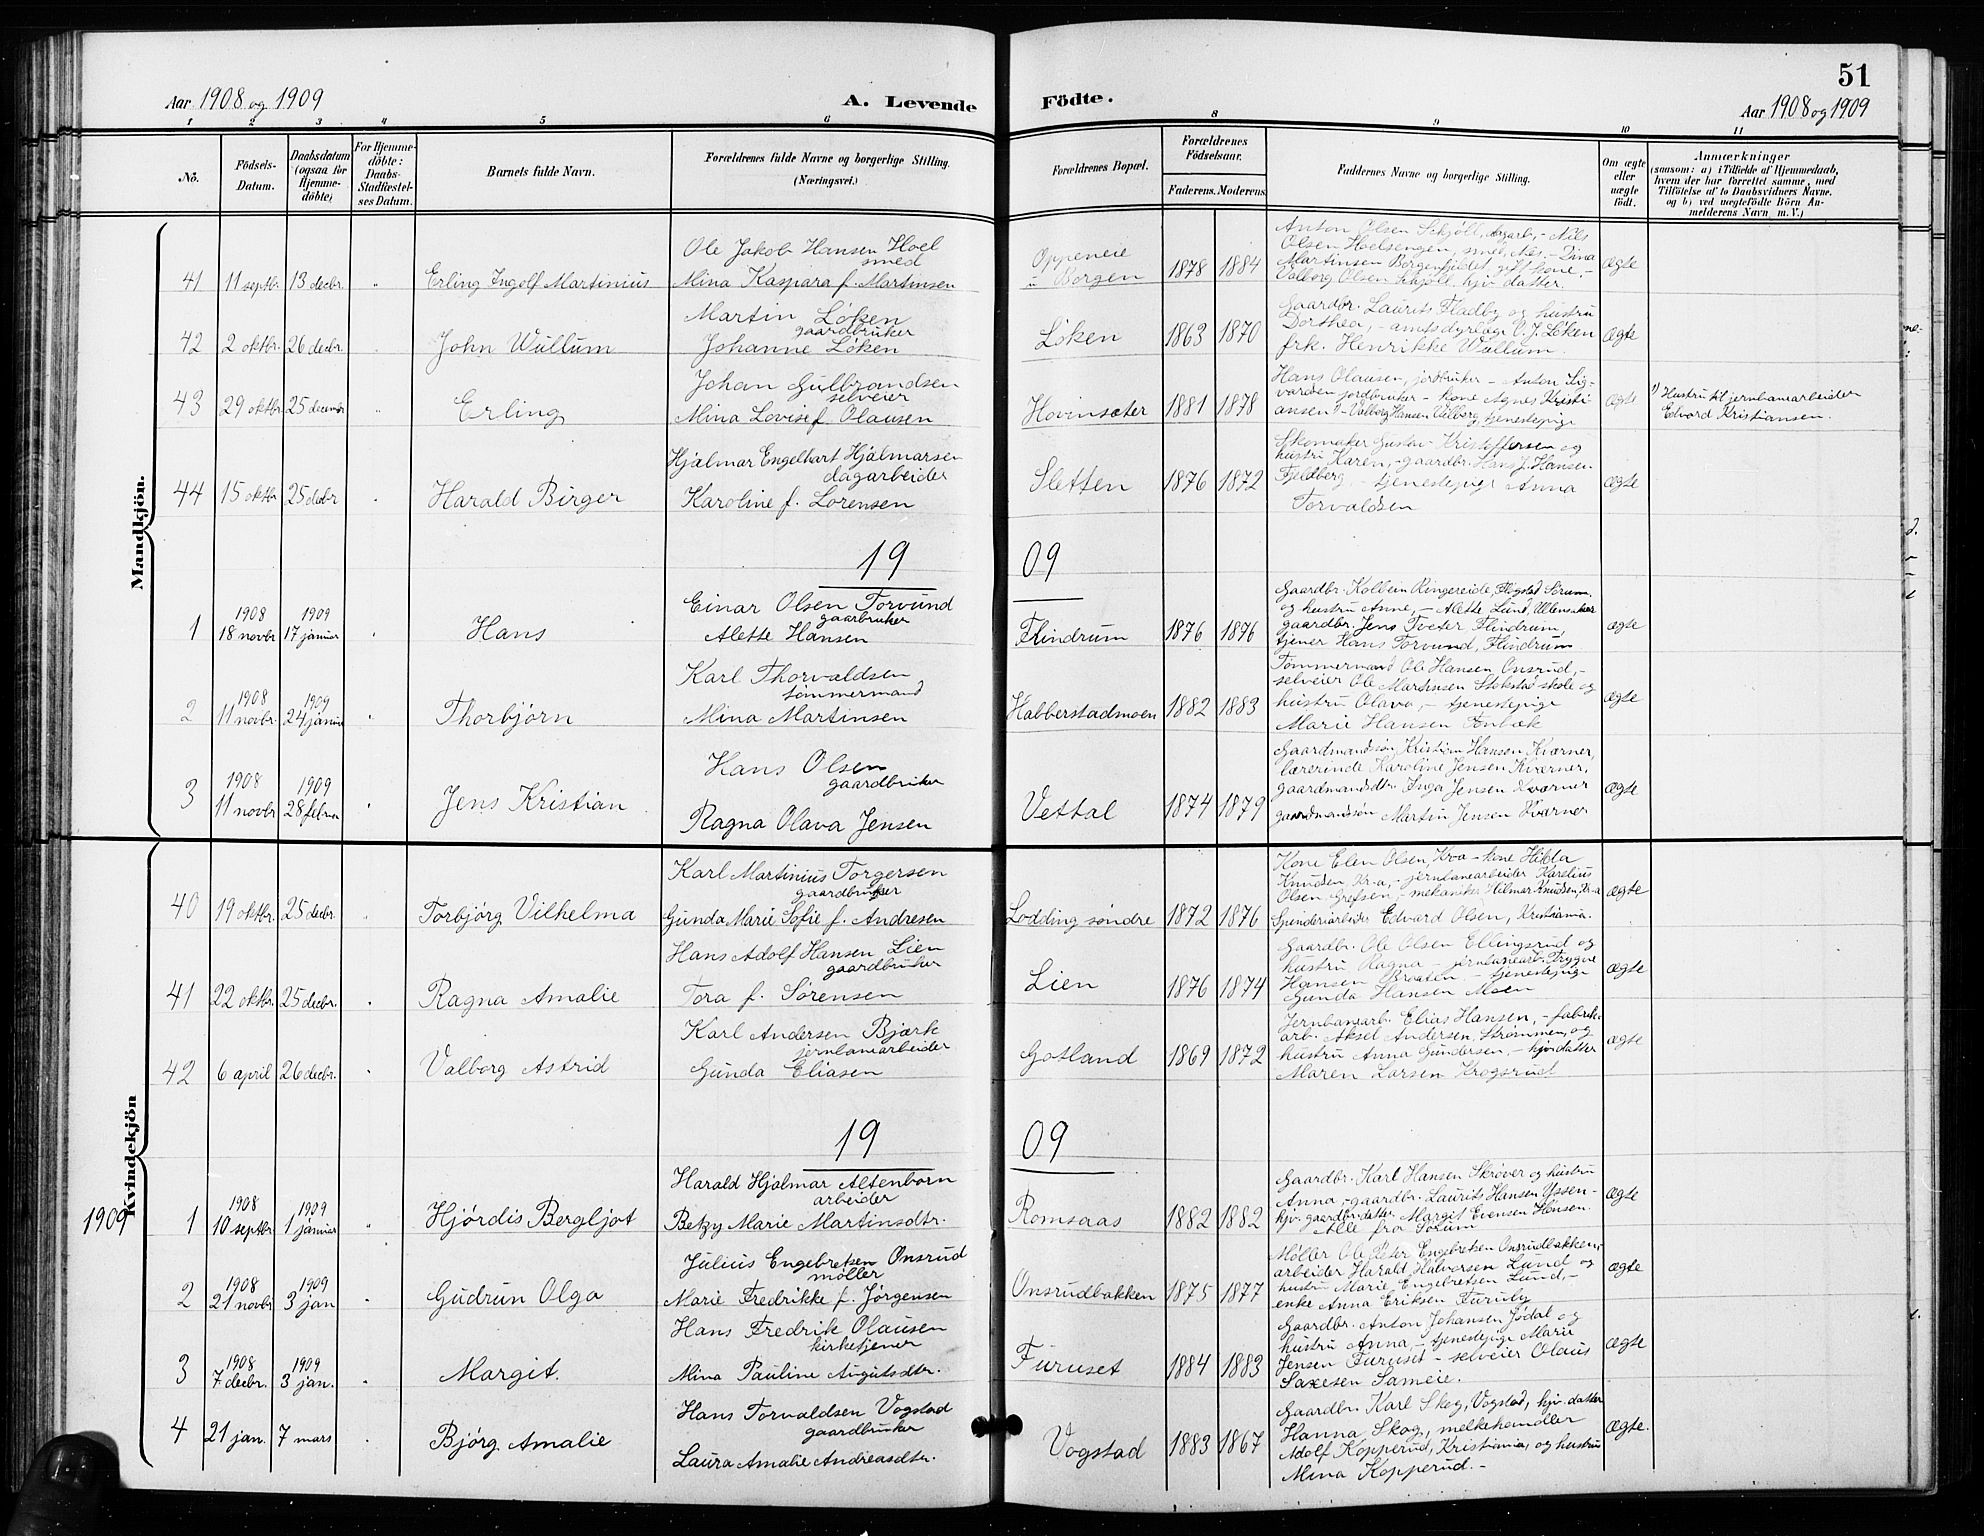 51
Aar 1908 og 1909
A. Levende Födte.
Aar 1908 og 1909
1 2 3 4 5 6 8 9 10 11
No.
Födsels-Datum.
Daabsdatum (ogsaa for Hjemmedöbte)
For Hjemmedöbte: Daabs-Stadfæstelses Datum.
Barnets fulde Navn.
Forældrenes fulde Navne og borgerlige Stilling. (Næringsvei.)
Forældrenes Bopæl.
Forældrenes Födselsaar.
Faderens. Moderens.
Faddernes Navne og borgerlige Stilling.
Om ægte eller uægte födt.
Anmærkninger
(saasom: a) i Tilfælde af Hjemmedaab, hvem der har forrettet samme, med Tilföielse af to Daabsvidners Navne, og b) ved uægtefödte Börn Anmelderens Navn m. V.)
Mandkjön.
41 11 septbr. 13 decbr. " Erling Ingolf Martinius
Ole Jakob Hansen Hoel
smed
Mina Kaspara f. Martinsen
Oppeneie
u Borgen 1878 1884
Anton Olsen Skjöll, dagarb., - Nils
Olsen Hoelsengen, smed, Nes, - Dina
Martinsen Borgenfjeldet, gift kone, -
Valborg Olsen Skjöll, hjv. datter.
Ægte
42 2 oktbr. 26 decbr. " John Wullum
Martin Løken
gaardbruker
Johanne Løken
Løken 1863 1870
Gaardbr. Laurits Fladby og hustru
Dorthea, - amtsdyrlæge O. J. Løken
frk. Henrikke Wullum.
Ægte
43 29 oktbr. 25 december " Erling
Johan Gulbrandsen
selveier
Mina Lovise f. Olausen
Hovinsæter 1881 1878
Hans Olausen, jordbruker - Anton Sig-
vardsen jordbruker - kone Agnes Kristi-
ansen 1) - Valborg Hansen Vilberg, tjenestepige
Ægte
1) Hustru til jernbanearbeider
Edvard Kristiansen.
44 15 oktbr 25 decbr " Harald Birger
Hjalmar Engelhart Hjalmarsen
dagarbeider
Karoline f. Lorensen
Sletten 1876 1872
Skomaker Gustav Kristoffersen og
hustru Karen, - gaardbr. Hans J. Hansen
Fjeldberg - tjenestepige Anna
Torvaldsen
Ægte
19 09
1 1908 18 novbr 1909 17 januar " Hans
Einar Olsen Torvund
gaarbruker
Alette Hansen
Flindrum 1876 1876
Gaardbr. Kolbein Ringereide, Flogstad Sørum.
og hustru Anne, - Alette Lund, Ullensaker
gaardbr. Jens Tveter Flindrum,
tjener Hans Torvund, Flindrum
Ægte
2 1908 11 novbr. 1909 24 januar " Thorbjørn
Karl Thorvaldsen
tømmermand
Mina Martinsen
Habberstadmoen 1882 1883
Tømmermand Ole Hansen Onsrud, -
selveier Ole Martinsen Stokstad skole og
hustru Olava, - tjenestepige
Marie Hansen Fonbæk
Ægte
3 1908 11 novbr 1909 28 februar " Jens Kristian
Hans Olsen
gaardbruker
Ragna Olava Jensen
Vettal 1874 1879
Gaardmandssøn Kristian Hansen Kværner,
lærerinde Karoline Jensen Kværner,
gaardmandsdtr. Inga Jensen Kværner
gaardmandssøn Martin Jensen Kværner
Ægte
Kvindekjön
40 19 oktbr. 25 decbr. " Torbjørg Vilhelma
Karl Martinius Torgersen
gaardbruker
Gunda Marie Sofie f. Andresen
Lodding søndre 1872 1876
Kone Elen Olsen, Kra - kone Hilda
Knudsen, Kr-a, - jernbanearbeider Karelius
Olsen Grefsen, - mekaniker Hilmar Knudsen, Kr-a
Edvard Olsen, Kristiania.
ægte
41 22 oktbr. 25 decbr. " Ragna Amalie
Hans Adolf Hansen Lien
gaardbruker
Tora f. Sørensen
Lien 1876 1874
Gaardbr. Ole Olsen Ellingsrud og
hustru Ragna - jernbanearb. Trygve
Hansen Braaten - tjenestepige
Gunda Hansen Moen
Ægte
42 6 april 26 decbr. " Valborg Astrid
Karl Andersen Bjærk
jernbanearbeider
Gunda Eliasen
Gotland 1869 1872
Jernbanearb. Elias Hansen, - fabrik-
arb. Aksel Andersen, Strømmen, og
hustru Anna Gundersen, - hjv. datter
Maren Larsen Krogsrud
Ægte
19 09
1909 1 1908 10 septbr. 1909 1 januar " Hjørdis Bergljot
Harald Hjalmar Altenborn
arbeider
Betzy Marie Martinsdtr.
Romsaas 1882 1882
Gaardbr. Karl Hansen Skrøver og hustru
Anna, - gaardbr. Laurits Hansen Yssen -
hjv. gaardbr.datter Margit Evensen Hansen.
Alle fra Sørum
Ægte
2 1908 21 novbr 1909 3 jan " Gudrun Olga
Julius Engebretsen Onsrud
møller
Marie Fredrikke f. Jørgensen
Onsrudbakken 1875 1877
Møller Ole Peter Engebretsen Onsrudbakken, -
arbeider Harald Halvorsen Lund og
hustru Marie Engebretsen Lund, -
enke Anna Eriksen Furuly
ægte
3 1908 7 decbr. 1909 3 jan. " Margit.
Hans Fredrik Olausen
kirketjener
Mina Pauline Avgutsdtr.
Furuset 1884 1883
Gaardbr. Anton Johansen Jødal og
hustru Anna, - tjenestepige Marie
Jensen Furuset - selveier Olaus
Saxesen Sameie.
Ægte
4 21 jan. 7 mars " Bjørg Amalie
Hans Torvaldsen Vogstad
gaardbruker
Laura Amalie Andreasdtr.
Vogstad 1883 1867
Gaardbr. Karl Skog, Vogstad, hjv. datter
Hanna Skog, melkehandler
Adolf Kopperud, Kristiania, og hustru
Mina Kopperud. -
Ægte.